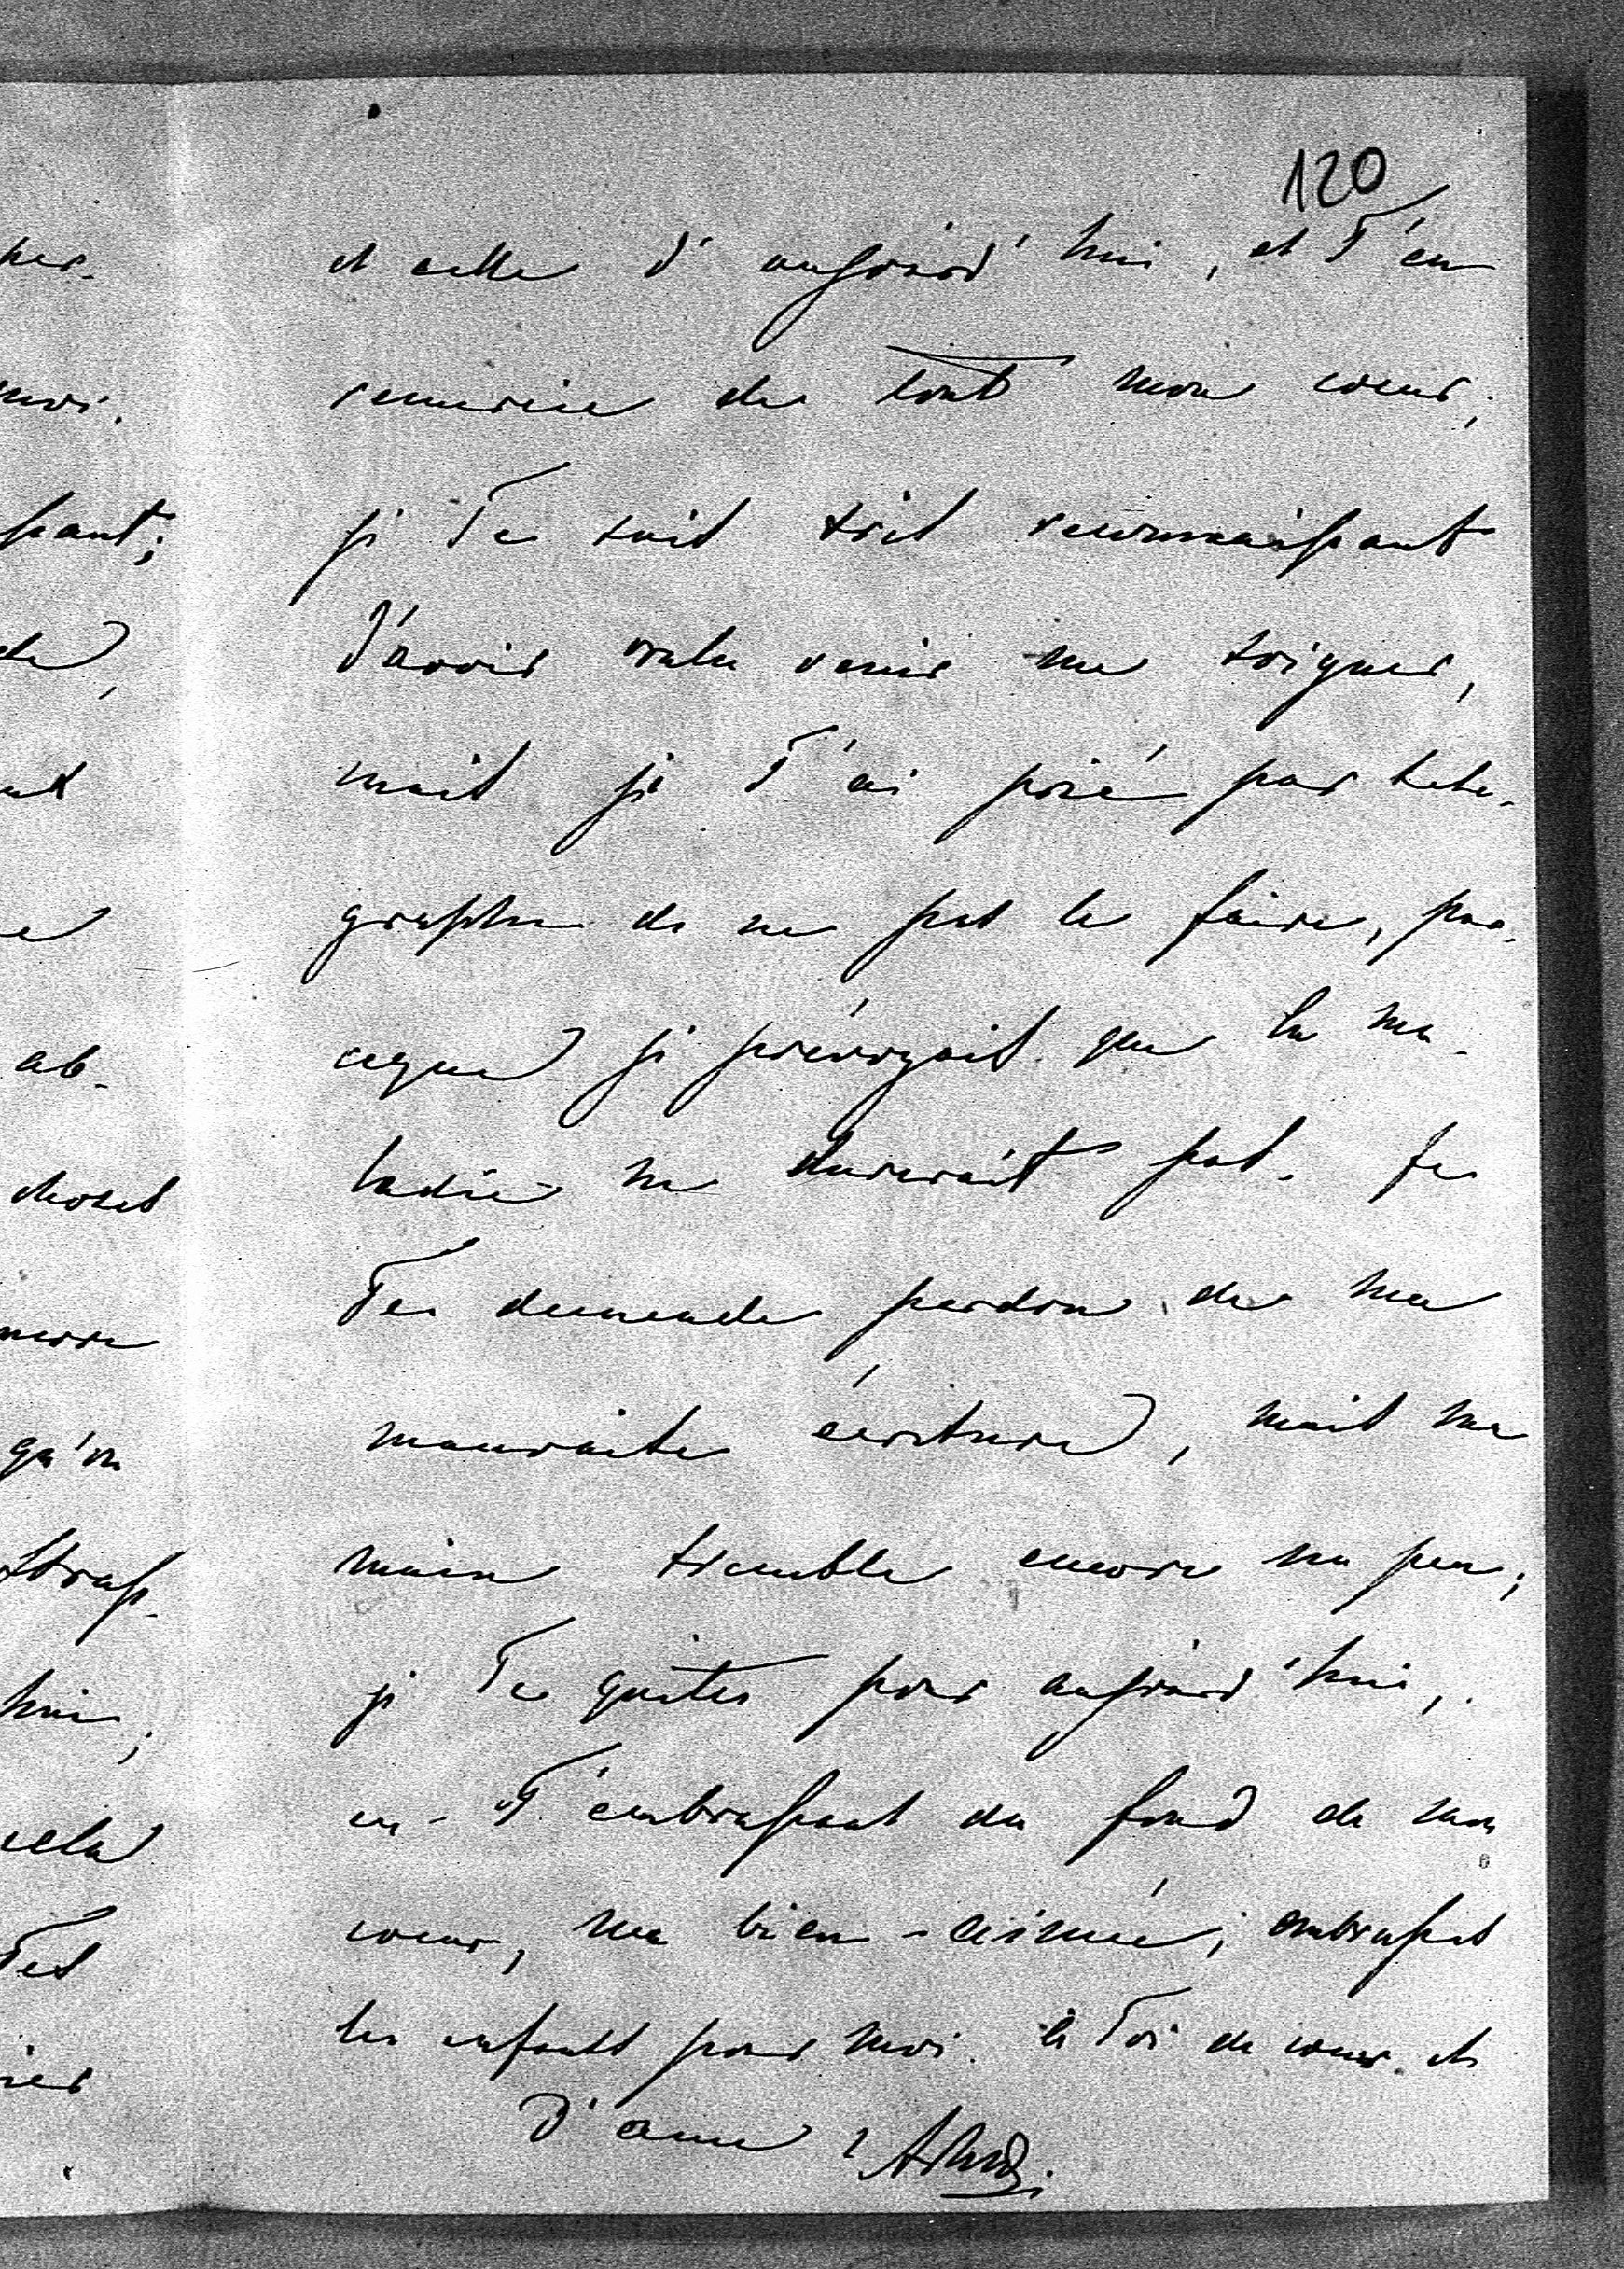 120
et celle d'aujourd'hui, et T'en
remercie de tout mon coeur;
je Te suis très reconnaissant
d'avoir voulu venir me soigner,
mais je T'ai prié par tele-
graphe de ne pas le faire, par-
ceque je prévoyais que la ma-
ladie ne durerait pas. Je
Te demande pardon de ma
mauvaise écriture, mais ma
main tremble encore un peu;
je Te quitte pour aujourd'hui,
en T'embrassant du fond de mon
coeur, ma bien-aimée; embrasses
les enfants pour moi. à Toi de coeur et
d'ame
per-
moi.
ssant;
ab-
choses
qu'on
hui;
cela
Tes